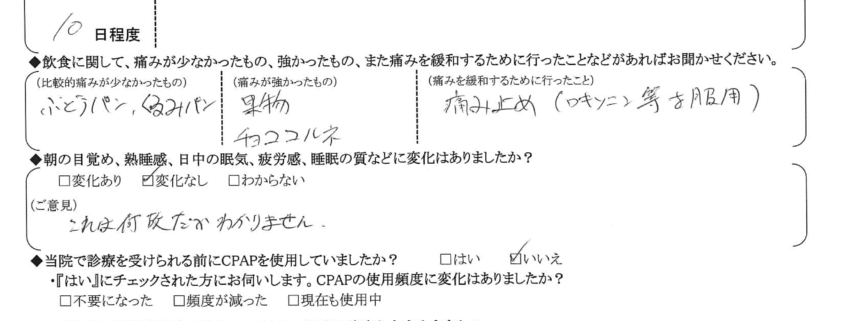 10 日程度
◆飲食に関して、痛みが少なかったもの、強かったもの、また痛みを緩和するために行ったことなどがあればお聞かせください。
(比較的痛みが少なかったもの) (痛みが強かったもの) (痛みを緩和するために行ったこと)
ぶどうパン、くるみパン 果物 痛み止め（ロキソニン等を服用）
チョココルネ
◆朝の目覚め、熟睡感、日中の眠気、疲労感、睡眠の質などに変化はありましたか？
□変化あり ☑変化なし □わからない
(ご意見)
これは何故だかわかりません.
◆当院で診療を受けられる前にCPAPを使用していましたか？ □はい ☑いいえ
・『はい』にチェックされた方にお伺いします。CPAPの使用頻度に変化はありましたか？
□不要になった □頻度が減った □現在も使用中